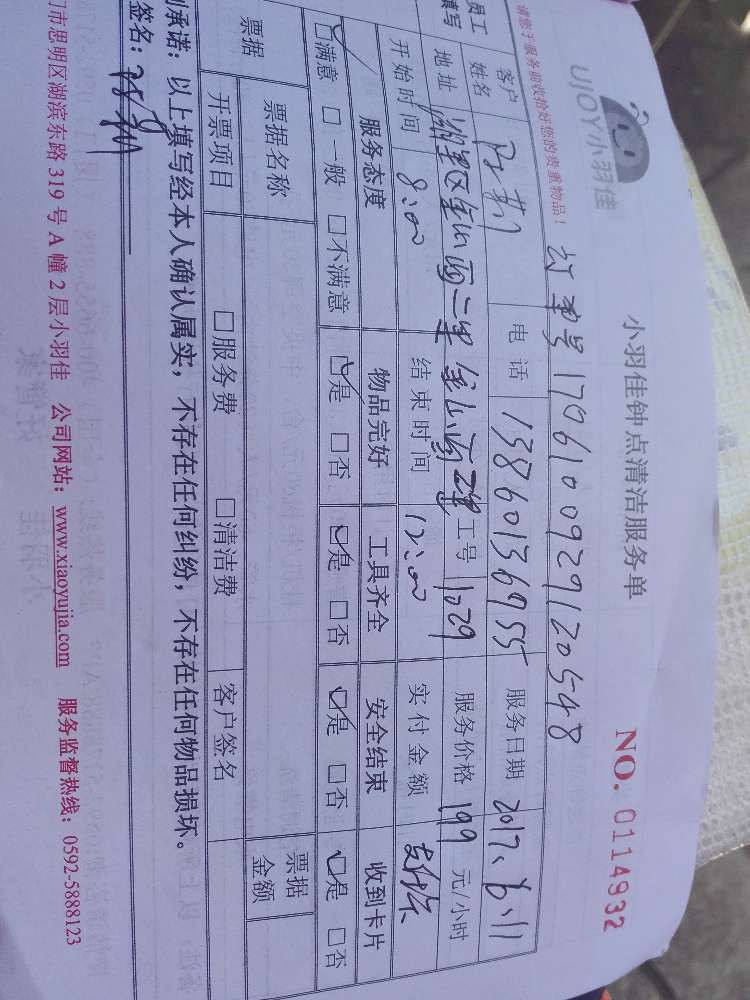 UJOY小羽佳
小羽佳钟点清洁服务单
NO. 0114932
请您于服务前收拾好您的贵重物品!
订单号 1706100929120548
员工填写
客户姓名 电话 13860136955 服务日期 2017.6.11
地址 工号 1029 服务价格 199 元/小时
开始时间 8:00 结束时间 12:00 实付金额
服务态度 物品完好 工具齐全 安全结束 收到卡片
☑满意 □一般 □不满意 ☑是 □否 ☑是 □否 ☑是 □否 ☑是 □否
票据 票据名称 票据金额
开票项目 □服务费 □清洁费 客户签名
承诺:以上填写经本人确认属实,不存在任何纠纷,不存在任何物品损坏。
签名:
门市思明区湖滨东路 319 号 A 幢 2 层小羽佳 公司网站:www.xiaoyujia.com 服务监督热线:0592-5888123